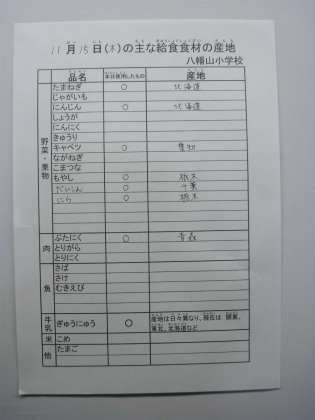 11月15日(木)の主な給食食材の産地
八幡山小学校
品名 本日使用したもの 産地
野菜・果物
たまねぎ ○ 北海道
じゃがいも
にんじん ○ 北海道
しょうが
にんにく
きゅうり
キャベツ ○ 愛知
ながねぎ
こまつな
もやし ○ 栃木
だいこん ○ 千葉
にら ○ 栃木
肉
ぶたにく ○ 青森
とりがら
とりにく
魚
さば
さけ
むきえび
牛乳 ぎゅうにゅう ○ 産地は日々異なり、現在は 関東、
東北、北海道など
米 こめ
他 たまご